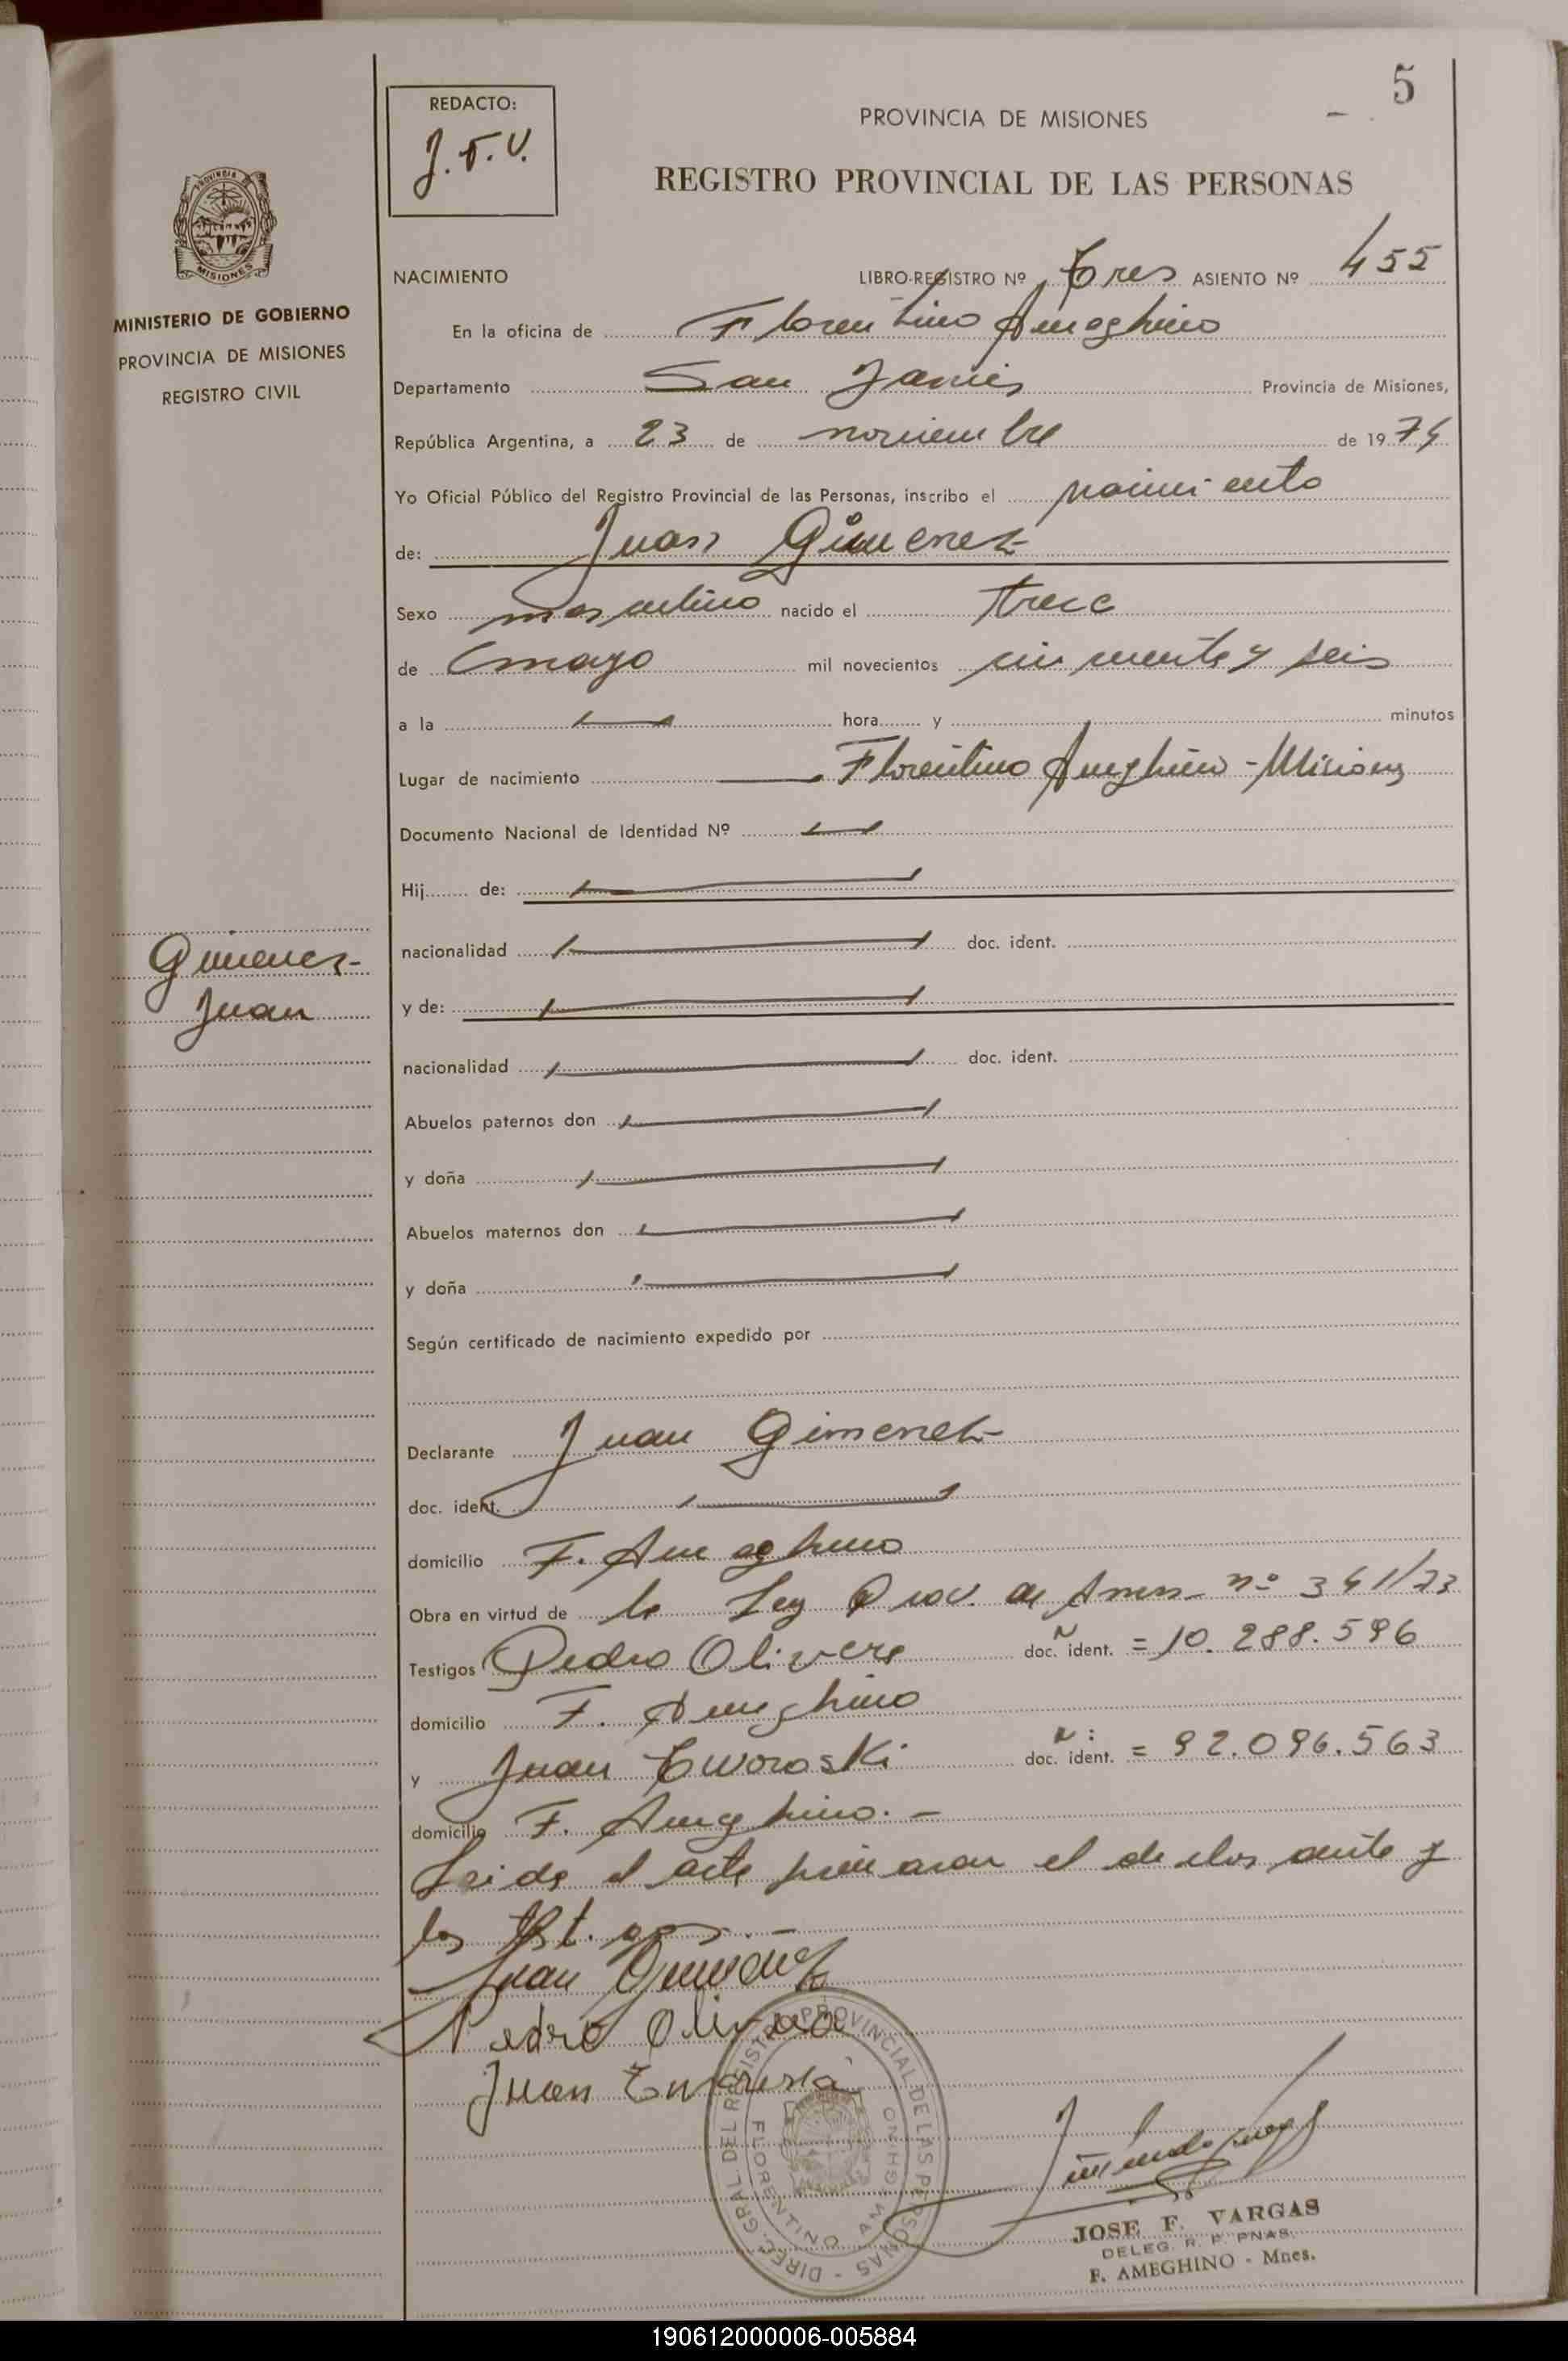 5
REDACTO:
J.F.V.
PROVINCIA DE MISIONES
REGISTRO PROVINCIAL DE LAS PERSONAS
PROVINCIA
MISIONES
MINISTERIO DE GOBIERNO
PROVINCIA DE MISIONES
REGISTRO CIVIL
NACIMIENTO LIBRO-REGISTRO Nº Tres ASIENTO Nº 455
En la oficina de Florentino Ameghino
Departamento San Javier Provincia de Misiones,
República Argentina, a 23 de noviembre de 1974
Yo Oficial Público del Registro Provincial de las Personas, inscribo el nacimiento
de: Juan Gimenez
Sexo masculino nacido el trece
de mayo mil novecientos cincuenta y seis
a la hora y minutos
Lugar de nacimiento Florentino Ameghino - Misiones
Documento Nacional de Identidad Nº
Hij de:
Gimenez
Juan
nacionalidad doc. ident.
y de:
nacionalidad doc. ident.
Abuelos paternos don
y doña
Abuelos maternos don
y doña
Según certificado de nacimiento expedido por
Declarante Juan Gimenez
doc. ident.
domicilio F. Ameghino
Obra en virtud de la Ley Prov. de nº
Testigos Pedro Olivera doc. ident. = 10.288.596
domicilio F. Ameghino
y Juan Tworoski doc. ident. = 92.096.563
domicilio F. Ameghino. -
Leida el acta firmaron el declarante y
los testigos. -
Juan Gimenez
Pedro Olivera
Juan
DIREC. GRAL. DEL REGISTRO PROVINCIAL DE LAS PERSONAS -
FLORENTINO AMEGHINO
JOSE F. VARGAS
DELEG. R. P. PNAS.
F. AMEGHINO - Mnes.
190612000006-005884